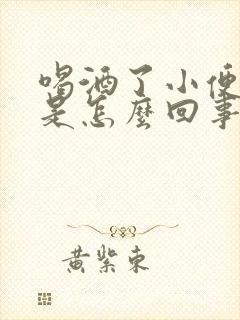 喝酒了小便
是怎麼回事
黄紫東